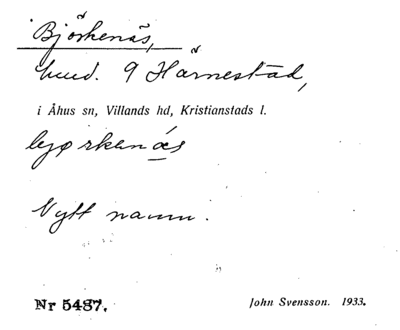 Björkenäs,
hmd. 9 Härnestad,
i Åhus sn, Villands hd, Kristianstads l.
Nytt namn.
Nr 5487.
John Svensson. 1933.